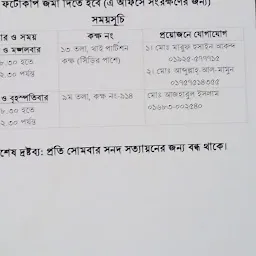 ফটোকপি জমা দিতে হবে (এ অফিসে সংরক্ষণের জন্য)
সময়সূচি
বার ও সময় কক্ষ নং প্রয়োজনে যোগাযোগ
ও মঙ্গলবার ১৩ তলা, থাই পার্টিশন ১। মোঃ মারুফ হুসাইন আকন্দ
৮.৩০ হতে কক্ষ (সিঁড়ির পাশে)
২.৩০ পর্যন্ত ২। মোঃ আব্দুল্লাহ আল-মামুন
০১৭৫৭৫১৪৩৫৫
ও বৃহস্পতিবার ৯ম তলা, কক্ষ নং-৯১৪ মোঃ আজহারুল ইসলাম
৮.৩০ হতে ০১৬৮৩-০০২৫৪০
২.৩০ পর্যন্ত
শেষ দ্রষ্টব্য: প্রতি সোমবার সনদ সত্যায়নের জন্য বন্ধ থাকে।